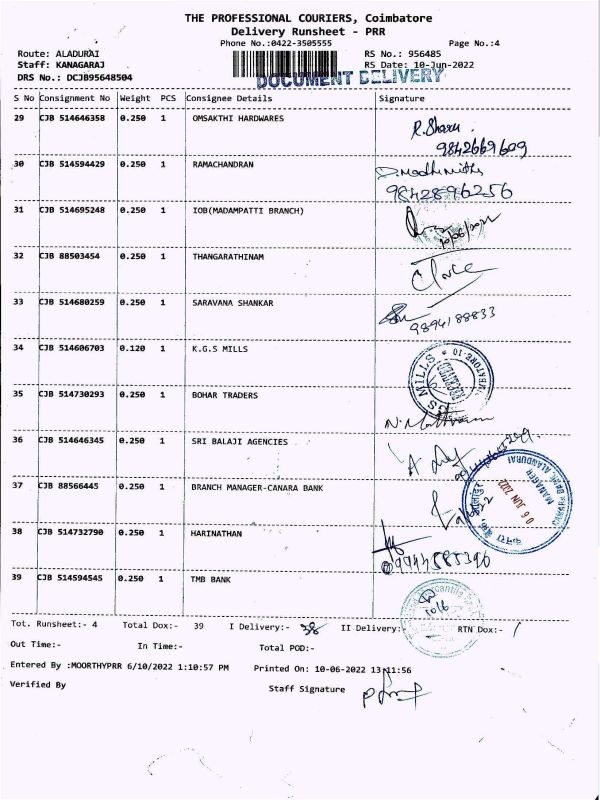 THE PROFESSIONAL COURIERS, Coimbatore
Delivery Runsheet - PRR
Phone No.:0422-3505555
Page No.:4
Route: ALADURAI
RS No.: 956485
Staff: KANAGARAJ
RS Date: 10-Jun-2022
DRS No.: DCJB95648504
DOCUMENT DELIVERY
S No Consignment No Weight PCS Consignee Details Signature
29 CJB 514646358 0.250 1 OMSAKTHI HARDWARES
9842669609
30 CJB 514594429 0.250 1 RAMACHANDRAN
9842896256
31 CJB 514695248 0.250 1 IOB(MADAMPATTI BRANCH)
10/06/2022
32 CJB 88503454 0.250 1 THANGARATHINAM
33 CJB 514680259 0.250 1 SARAVANA SHANKAR
9894188833
34 CJB 514606703 0.120 1 K.G.S MILLS
35 CJB 514730293 0.250 1 BOHAR TRADERS
36 CJB 514646345 0.250 1 SRI BALAJI AGENCIES
37 CJB 88566445 0.250 1 BRANCH MANAGER-CANARA BANK
06 JUN 2022
MANAGER
38 CJB 514732790 0.250 1 HARINATHAN
9944585396
39 CJB 514594545 0.250 1 TMB BANK
10/6
Tot. Runsheet:- 4 Total Dox:- 39 I Delivery:- 38 II Delivery:- RTN Dox:- 1
Out Time:- In Time:- Total POD:-
Entered By :MOORTHYPRR 6/10/2022 1:10:57 PM Printed On: 10-06-2022 13:11:56
Verified By Staff Signature